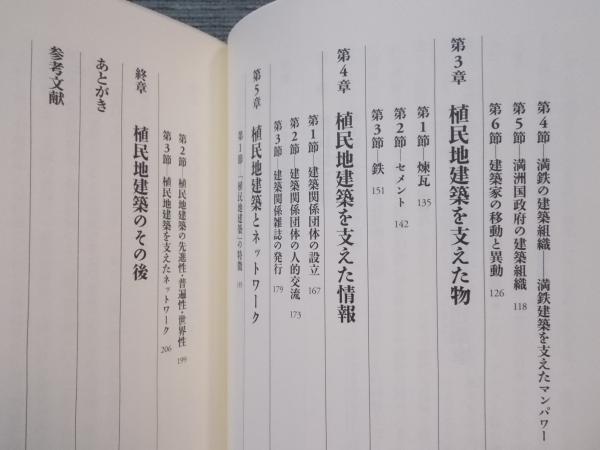 第4節─満鉄の建築組織 満鉄建築を支えたマンパワー
第5節─満洲国政府の建築組織 118
第6節─建築家の移動と異動 126
第3章 植民地建築を支えた物
第1節─煉瓦 135
第2節─セメント 142
第3節─鉄 151
第4章 植民地建築を支えた情報
第1節─建築関係団体の設立 167
第2節─建築関係団体の人的交流 173
第3節─建築関係雑誌の発行 179
第5章 植民地建築とネットワーク
第1節─「植民地建築」の特徴
第2節─植民地建築の先進性・普遍性・世界性 199
第3節─植民地建築を支えたネットワーク 206
終章 植民地建築のその後
あとがき
参考文献